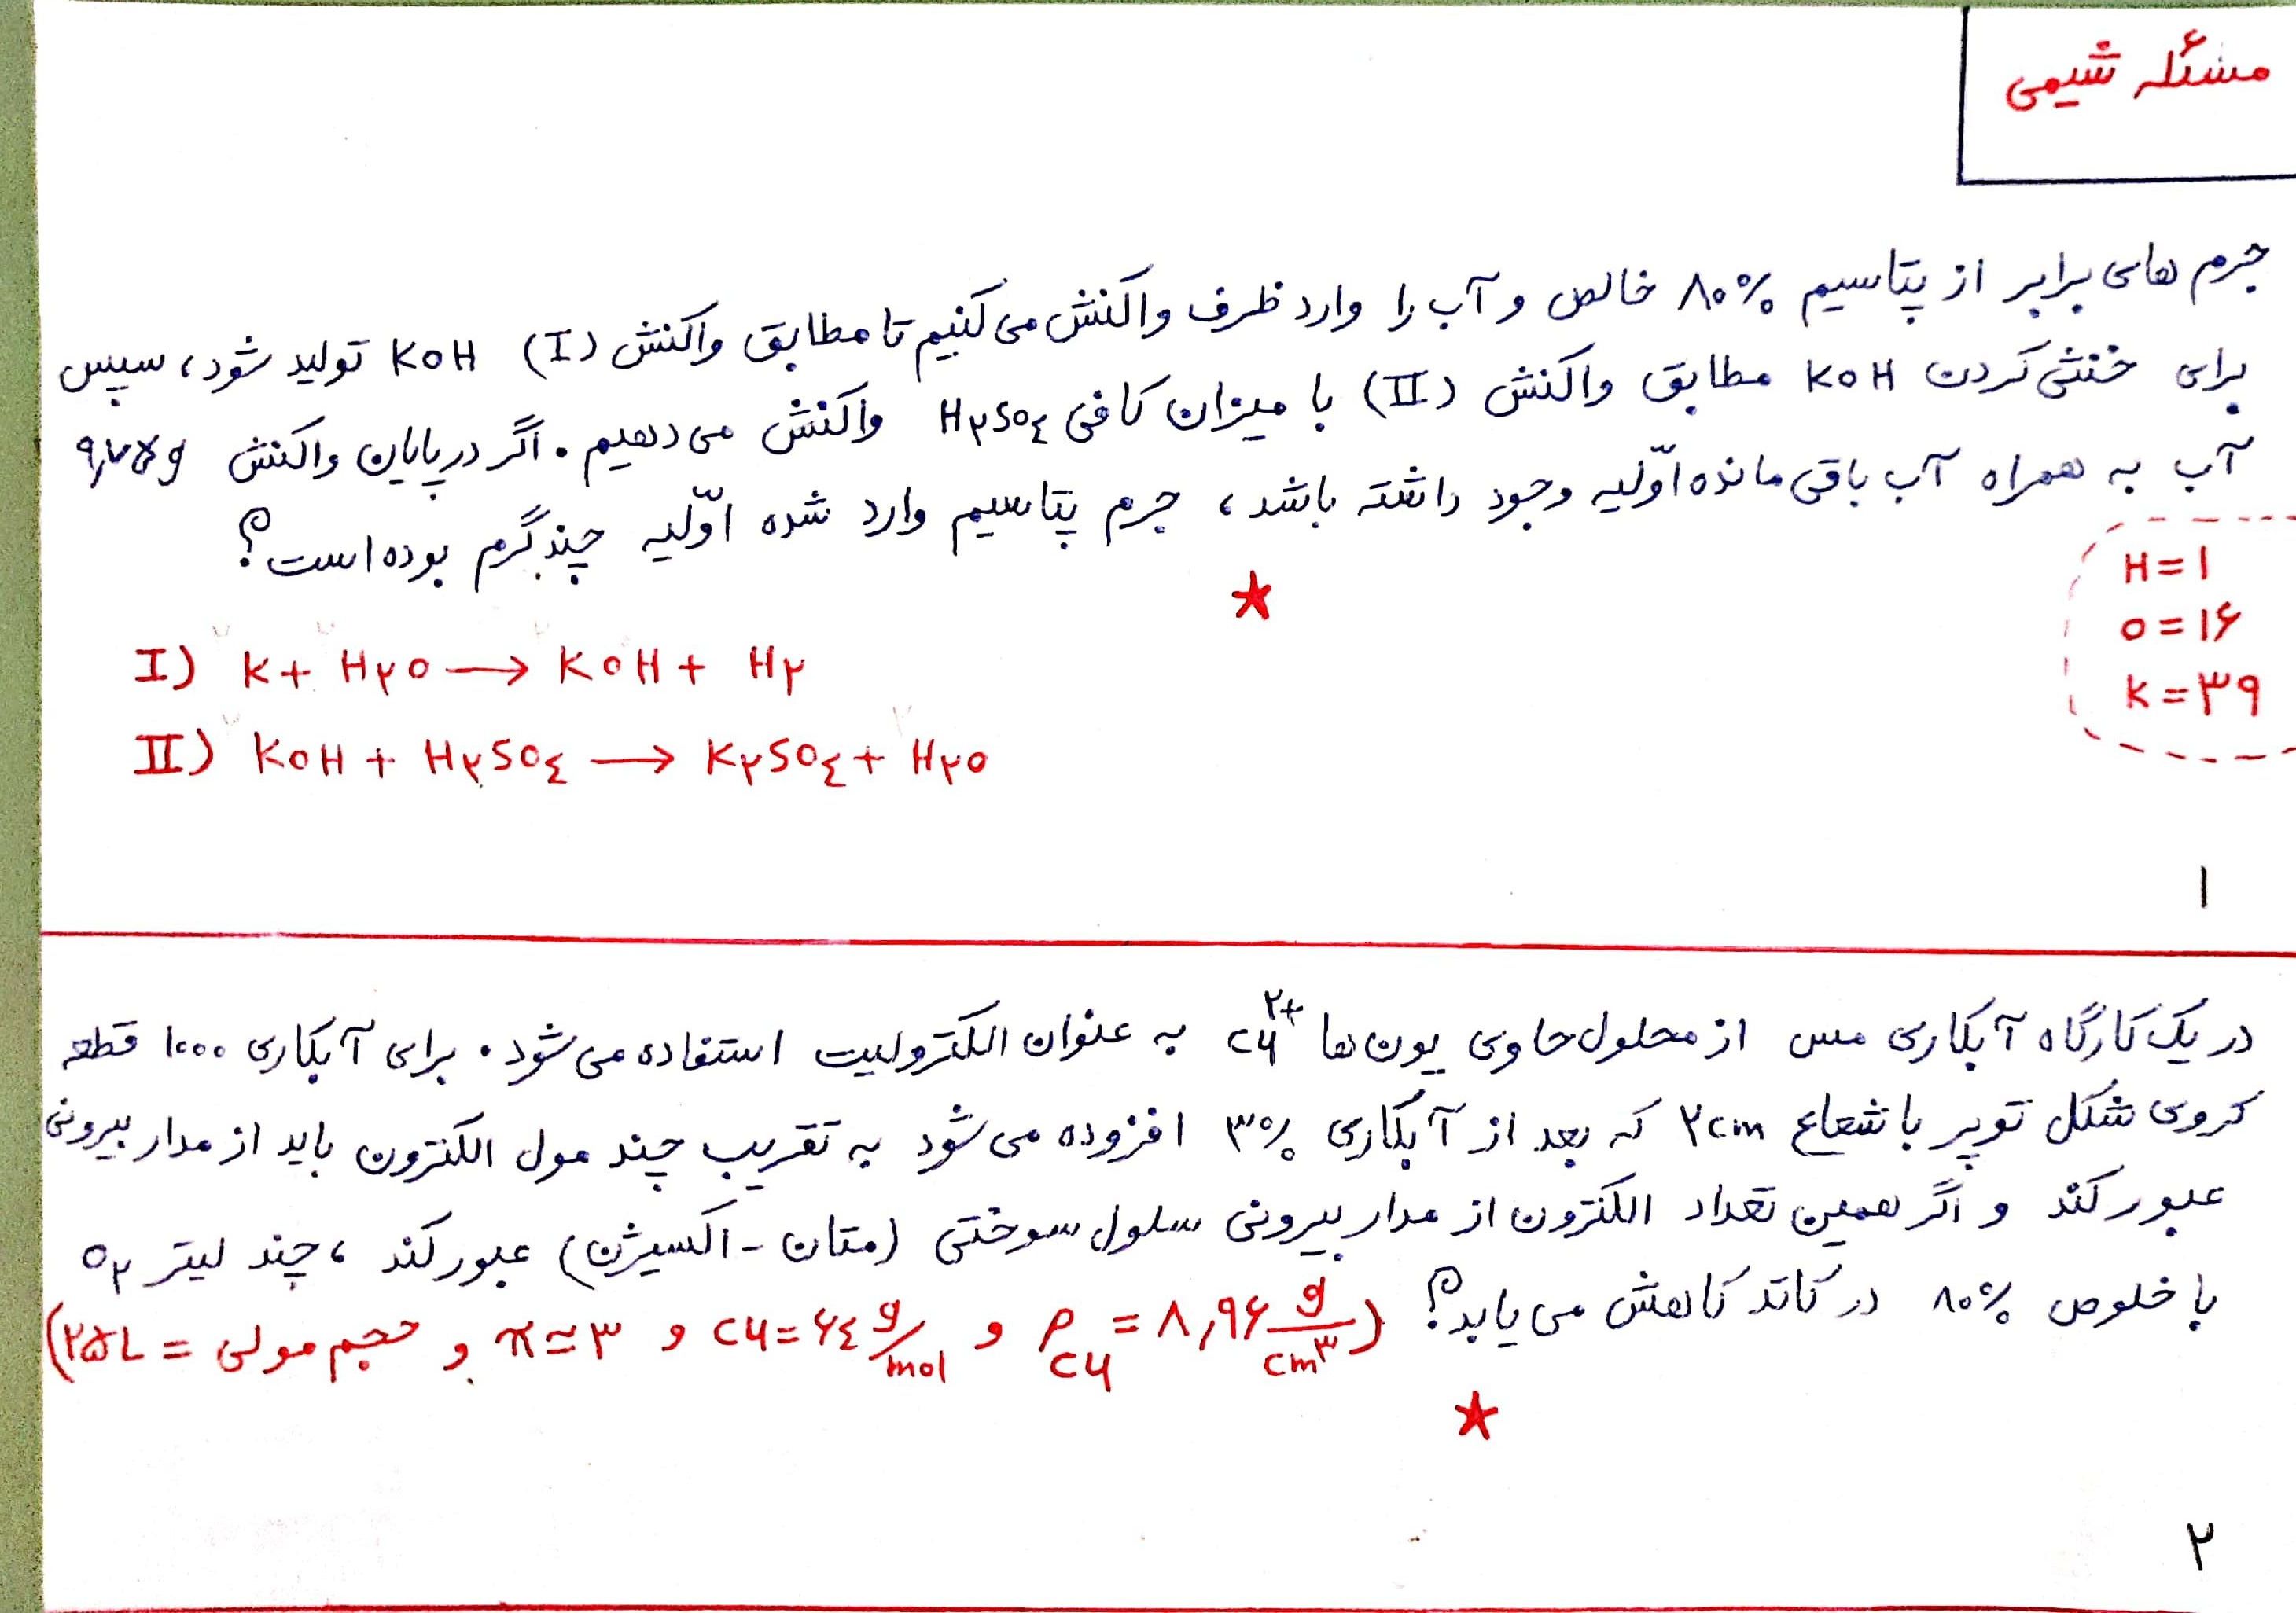 مسئله شیمی
جرم های برابر از پتاسیم ۸۰% خالص و آب را وارد ظرف واکنش می کنیم تا مطابق واکنش (I) KOH تولید شود، سپس
برای خنثی کردن KOH مطابق واکنش (II) با میزان کافی H۲SO٤ واکنش می دهیم. اگر در پایان واکنش ۹٫۷۵g
آب به همراه آب باقی مانده اوّلیه وجود داشته باشد، جرم پتاسیم وارد شده اوّلیه چند گرم بوده است؟
H=۱
O=۱۶
K=۳۹
I) K + H۲O → KOH + H۲
II) KOH + H۲SO٤ → K۲SO٤ + H۲O
۱
در یک کارگاه آبکاری مس از محلول حاوی یون ها Cu۲+ به عنوان الکترولیت استفاده می شود. برای آبکاری ۱۰۰۰ قطعه
کروی شکل توپر با شعاع ۲cm که بعد از آبکاری ۳% افزوده می شود به تقریب چند مول الکترون باید از مدار بیرونی
عبور کند و اگر همین تعداد الکترون از مدار بیرونی سلول سوختی (متان - اکسیژن) عبور کند، چند لیتر O۲
با خلوص ۸۰% در کاتد کاهش می یابد؟ (ρCu = ۸٫۹۶ g/cm۳ و Cu=۶٤ g/mol و π≃۳ و حجم مولی = ۲۵L)
۲